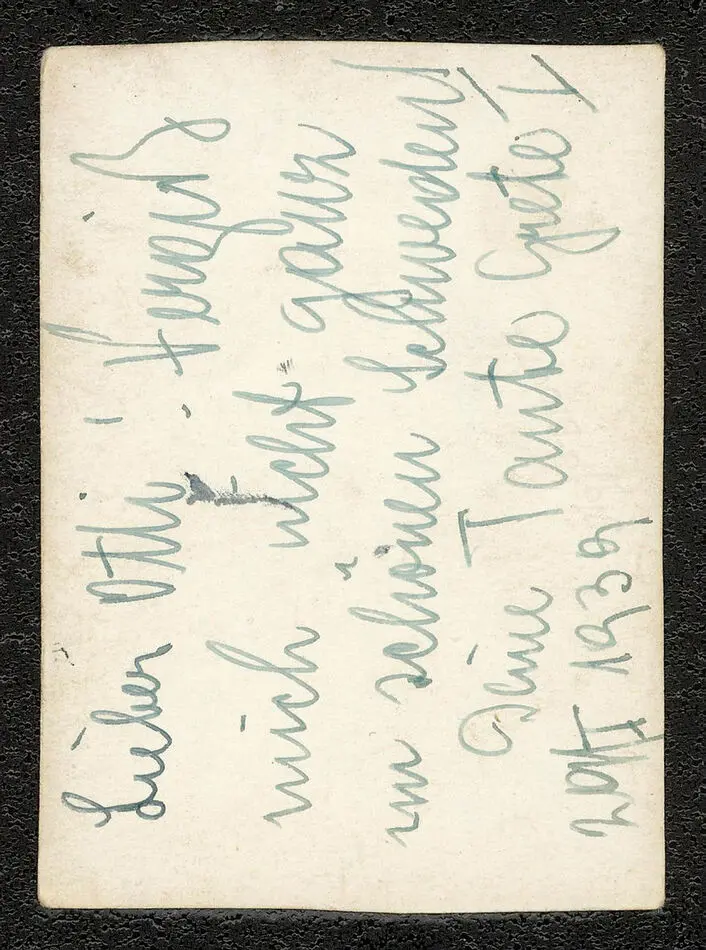 Lieber Otti! Vergiß
mich nicht ganz
im schönen Schweden!
Deine Tante Grete!
1939